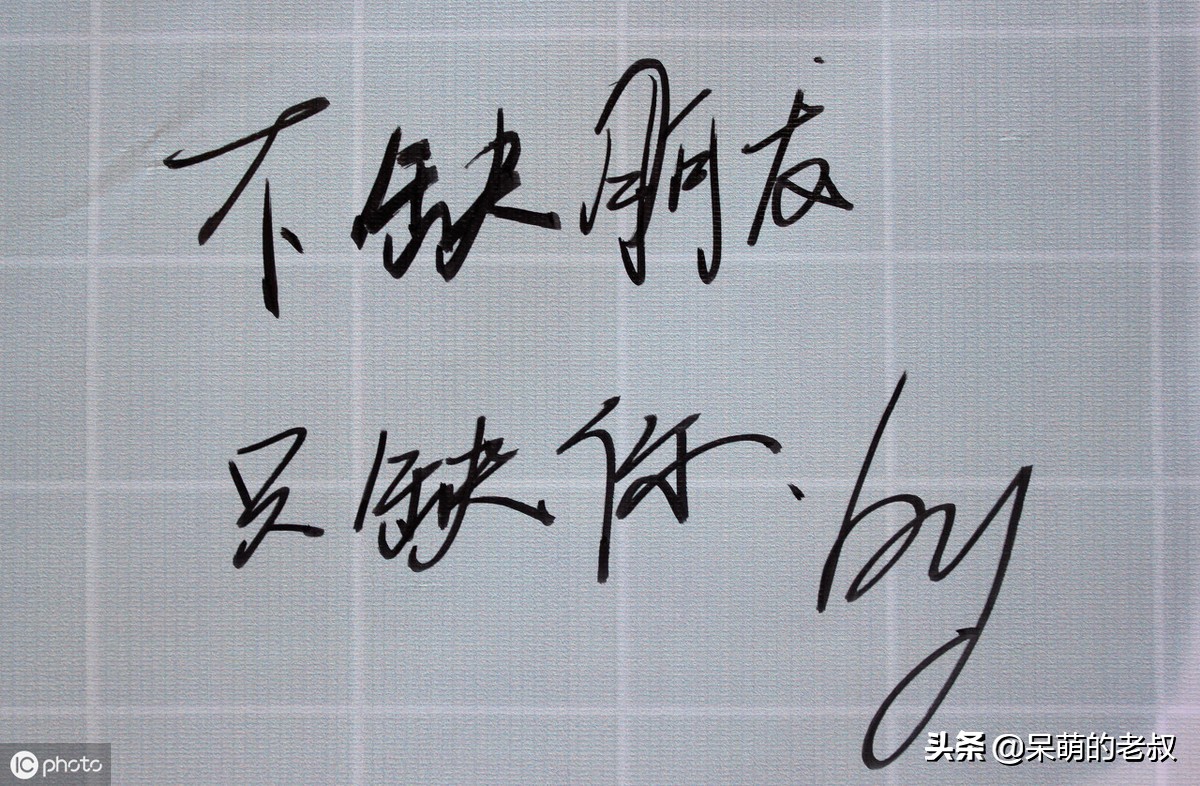 不缺朋友
只缺你、by
IC photo
头条 @呆萌的老叔